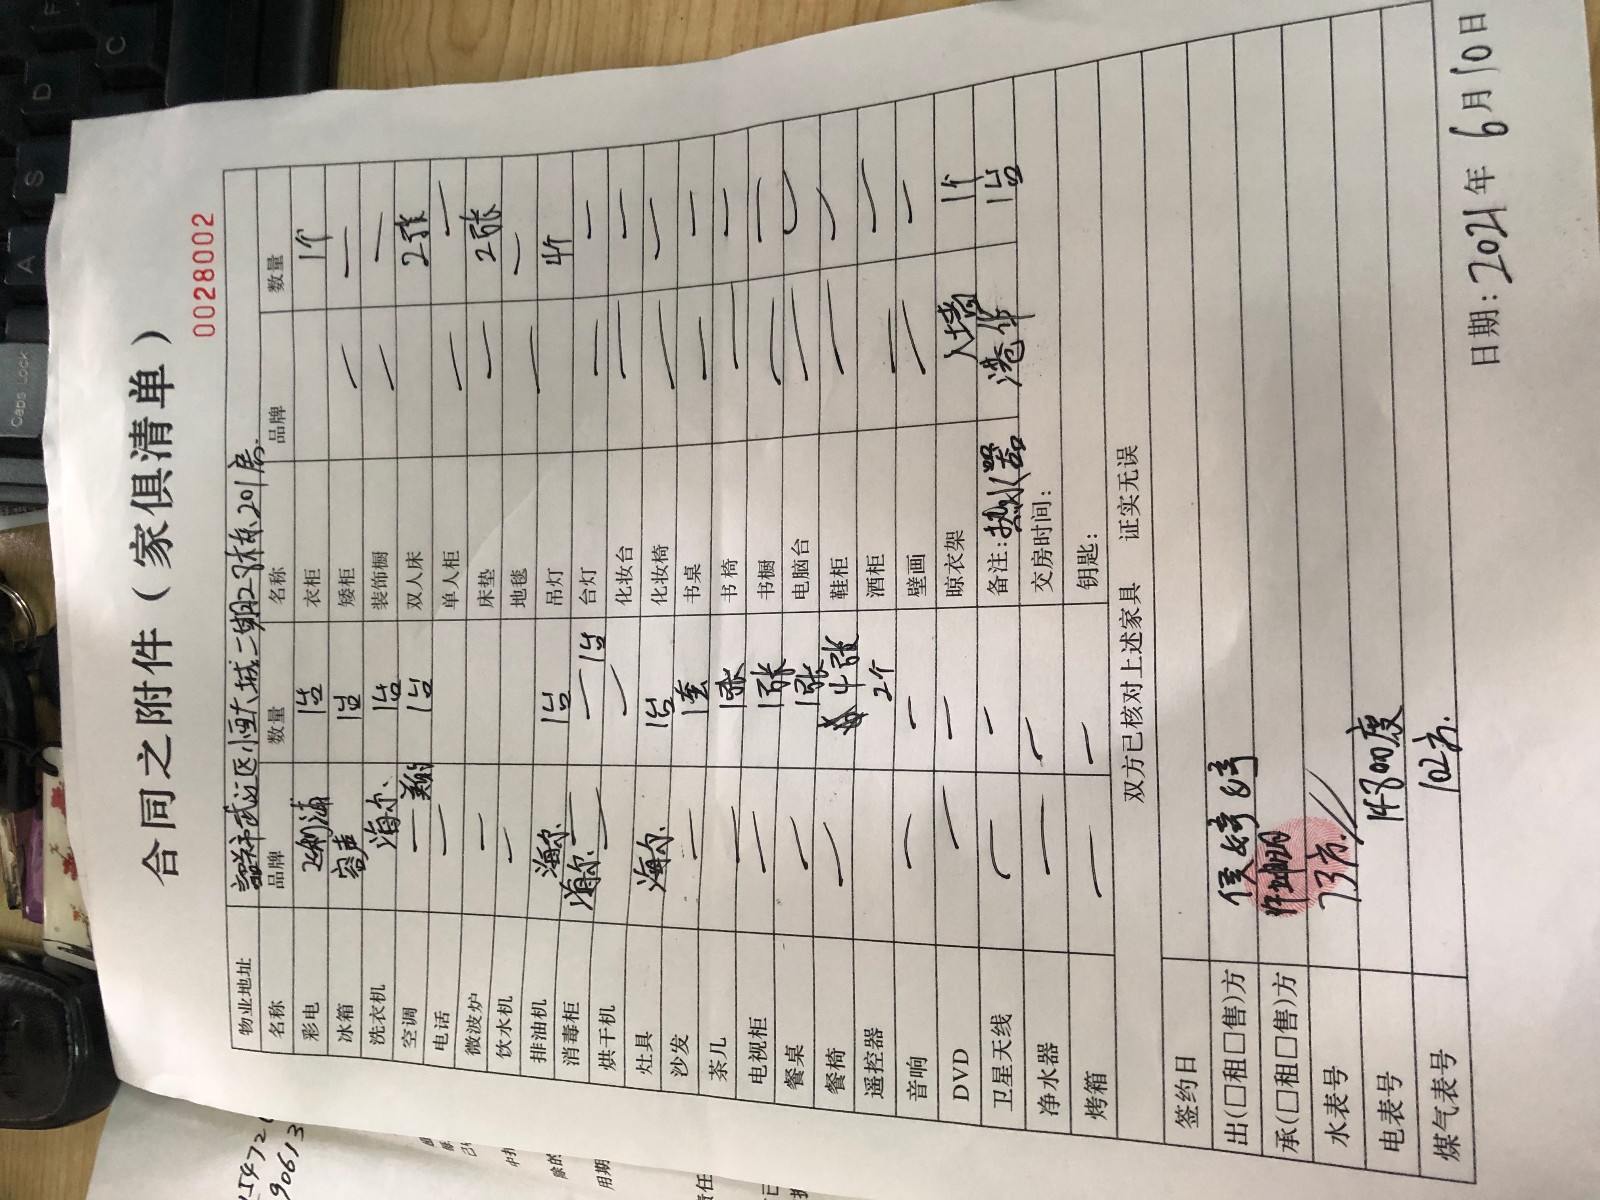 合同之附件（家俱清单）
00028002
物业地址 市武江区恒大城二期2-3栋201房
名称 品牌 数量 名称 品牌 数量
彩电 飞利浦 1台 衣柜 1个
冰箱 容声 1台 矮柜 — —
洗衣机 海尔 1台 装饰橱 — —
空调 — 1台 双人床 2张
电话 — 单人柜 — —
微波炉 — 床垫 — 2张
饮水机 — 地毯 — —
排油机 海尔 1台 吊灯 4个
消毒柜 海尔 — 1台 台灯 — —
烘干机 — — 化妆台 — —
灶具 海尔 1台 化妆椅 — —
沙发 — 1套 书桌 — —
茶几 1张 书椅 — —
电视柜 — 1张 书橱 — —
餐桌 — 1张 电脑台 —
餐椅 — 4张 鞋柜 —
遥控器 2个 酒柜 —
音响 — — 壁画 — —
DVD — — 晾衣架 1个
卫星天线 — — 备注：热水器 港华 1台
净水器 — — 交房时间：
烤箱 — — 钥匙：
双方已核对上述家具 证实无误
签约日
出(□租□售)方 侯婷婷
承(□租□售)方 许坤明
水表号 73方.
电表号 14800度
煤气表号 102方.
日期：2021年 6月10日
C
D
S
A
Caps Lock
90613
用期
责任